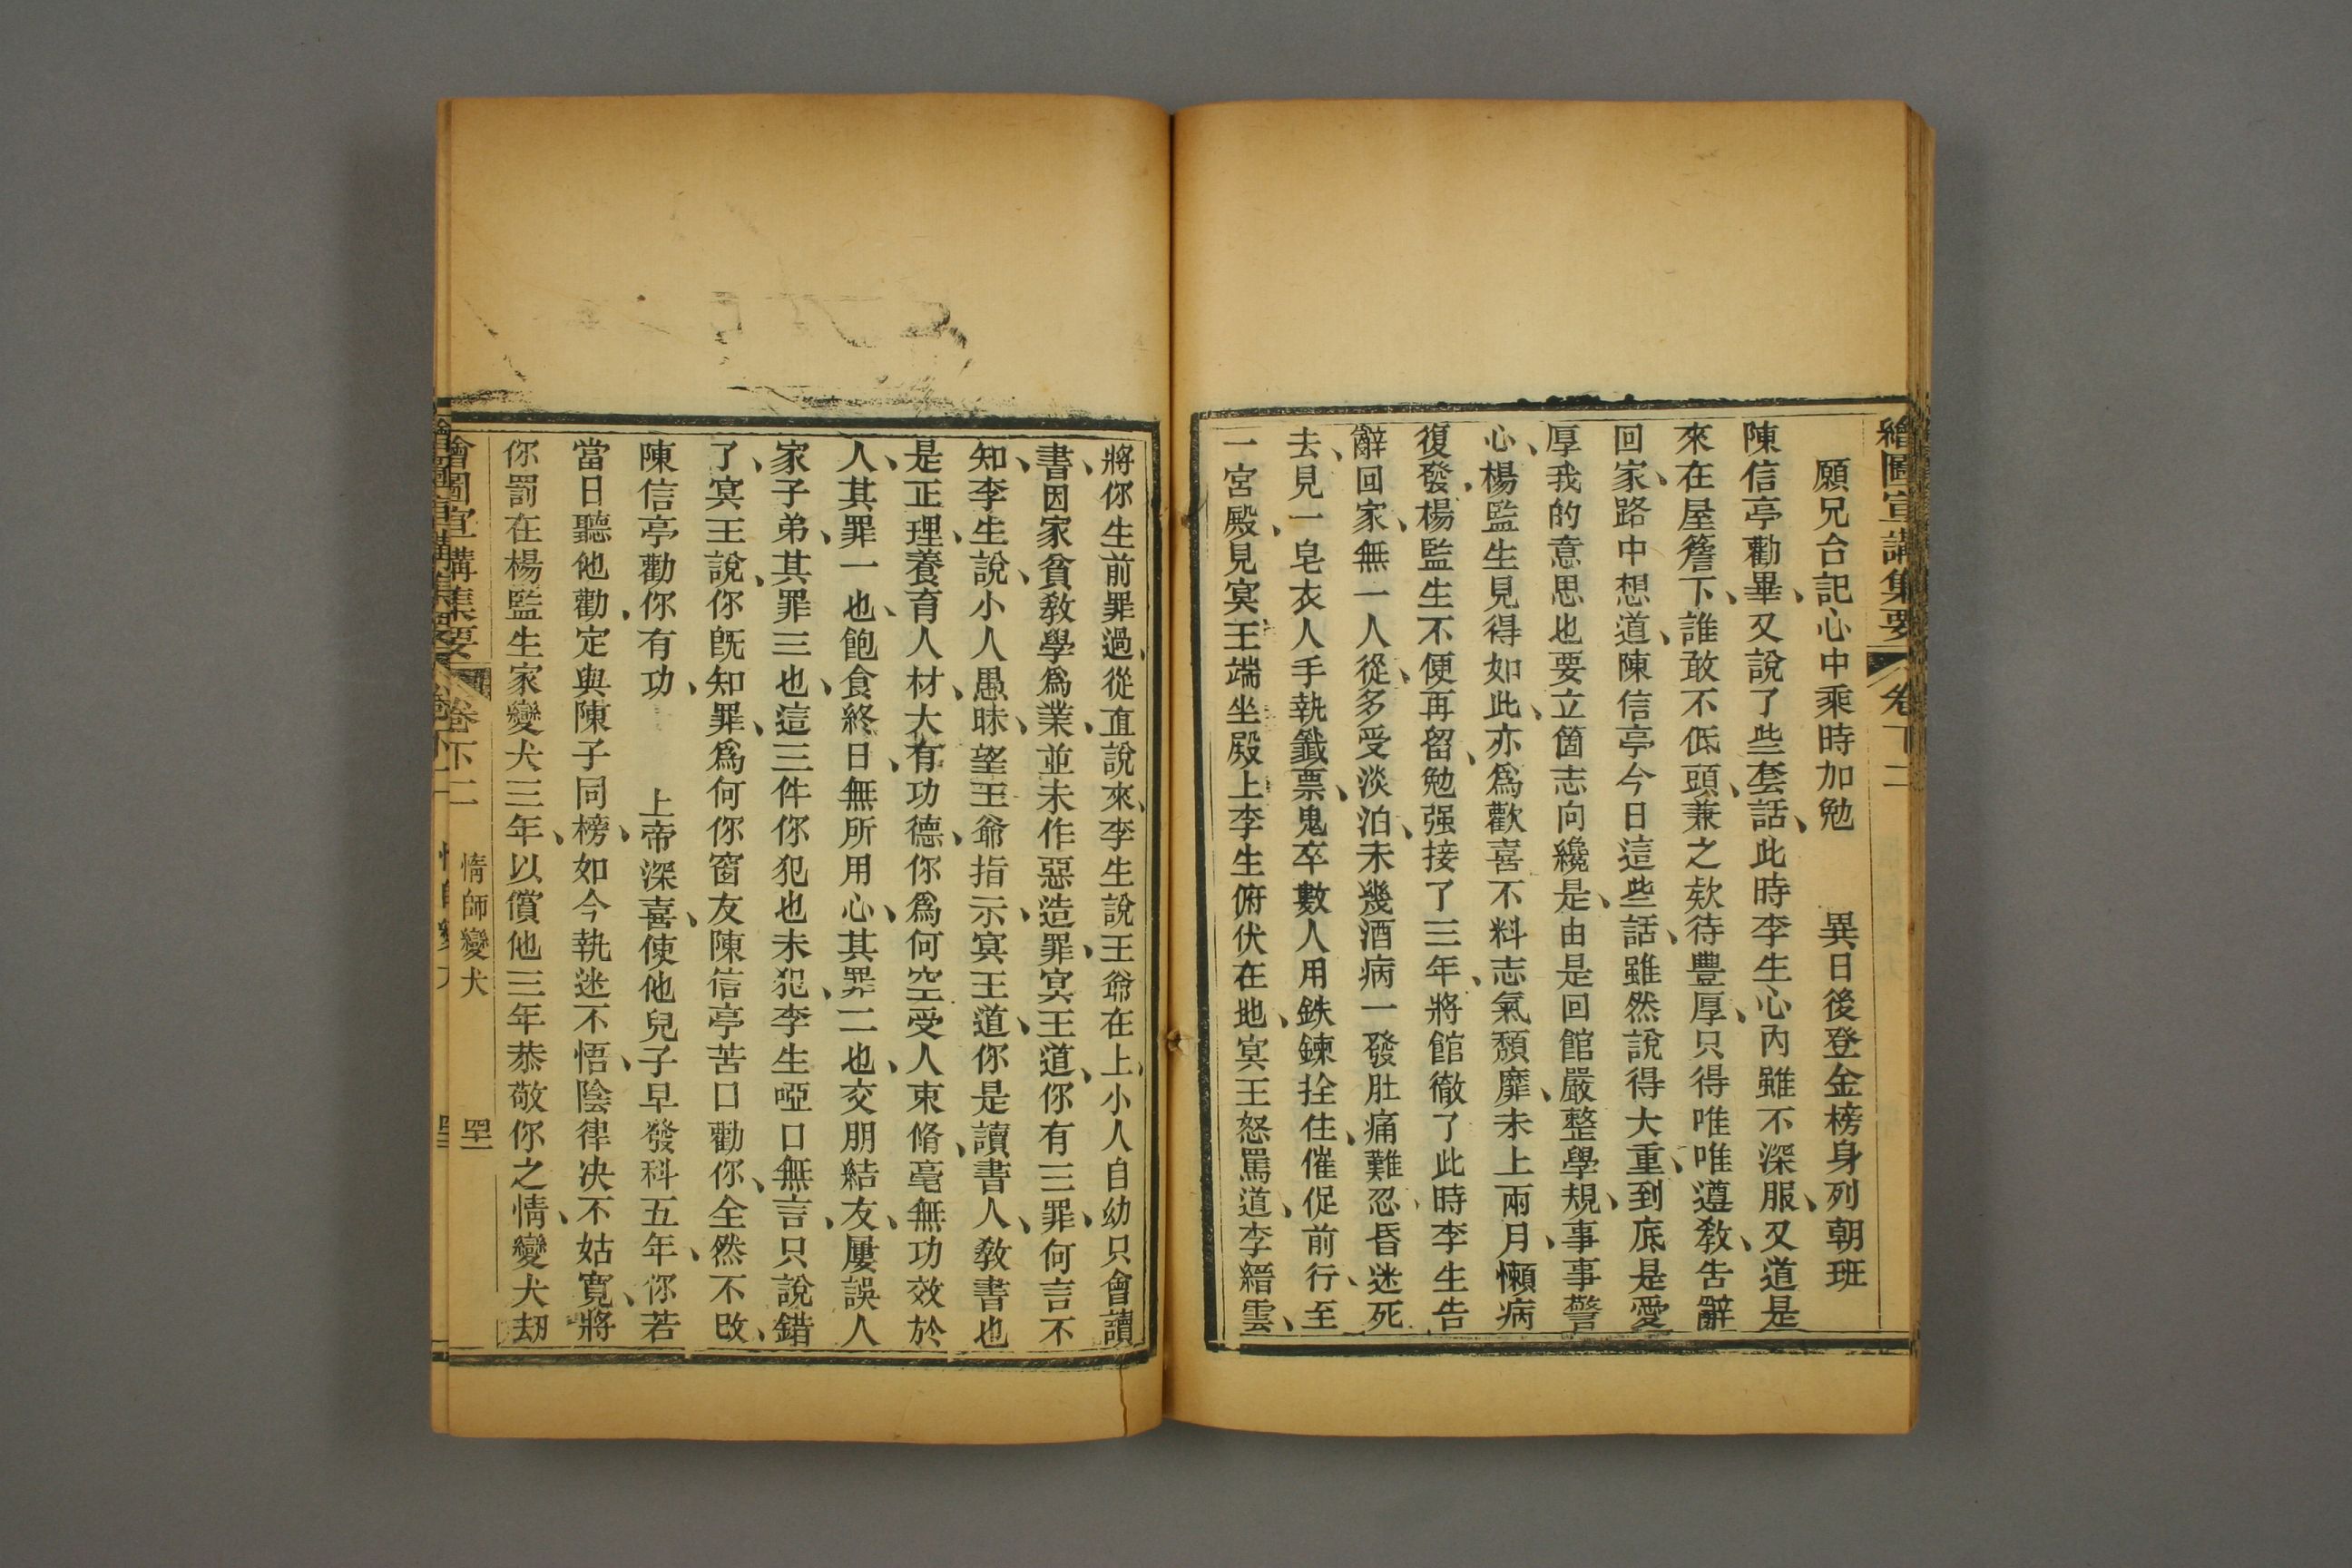 繪圖宣講集要 卷下二
願兄合記心中乘時加勉 異日後登金榜身列朝班
陳信亭勸畢、又說了些套話、此時李生心內雖不深服、又道是
來在屋簷下、誰敢不低頭、兼之欵待豐厚、只得唯唯遵教、告辭
回家、路中想道、陳信亭今日這些話、雖然說得大重、到底是愛
厚我的意思也要立箇志向纔是、由是回館嚴整學規、事事警
心、楊監生見得如此、亦爲歡喜不料志氣頹靡、未上兩月、懶病
復發、楊監生不便再留、勉强接了三年、將館徹了此時李生告
辭回家、無一人從、多受淡泊、未幾酒病一發肚痛難忍、昏迷死
去、見一皂衣人手執籤票、鬼卒數人用鉄鍊拴住、催促前行、至
一宮殿、見冥王端坐殿上李生俯伏在地、冥王怒罵道、李縉雲、
將你生前罪過、從直說來、李生說王爺在上、小人自幼只會讀
書、因家貧教學爲業、並未作惡造罪、冥王道、你有三罪、何言不
知、李生說、小人愚昧、望王爺指示、冥王道、你是讀書人、教書也
是正理、養育人材、大有功德、你爲何空受人東脩、毫無功效於
人、其罪一也、飽食終日、無所用心、其罪二也、交朋結友、屢誤人
家子弟、其罪三也、這三件你犯也未犯、李生啞口無言、只說錯
了、冥王說、你旣知罪、爲何你窗友陳信亭苦口勸你、全然不改、
陳信亭勸你有功、 上帝深喜、使他兒子早發科五年、你若
當日聽他勸、定與陳子同榜、如今執迷不悟、陰律决不姑寬、將
你罰在楊監生家變犬三年、以償他三年恭敬你之情、變犬刼
繪圖宣講集要 卷下二 惰師變犬 罕